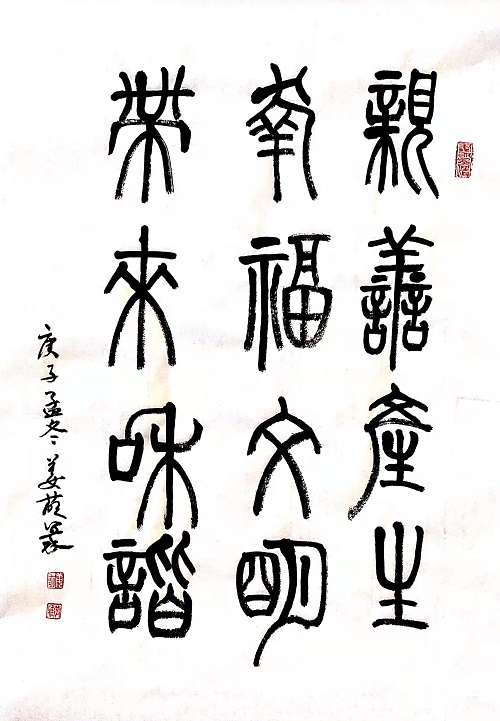 親善產生
幸福文明
帶來和諧
庚子孟冬姜萌篆